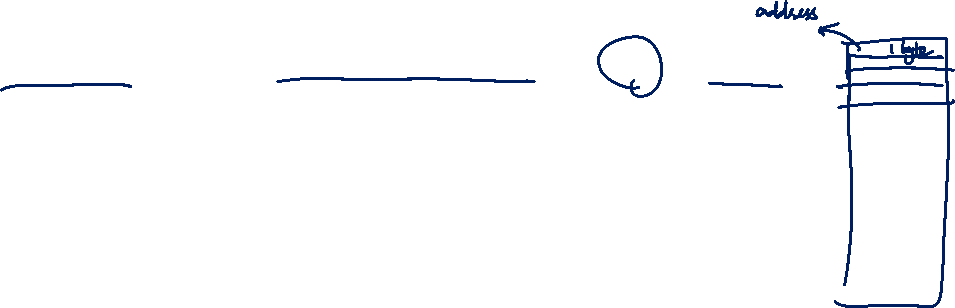 address
1 byte